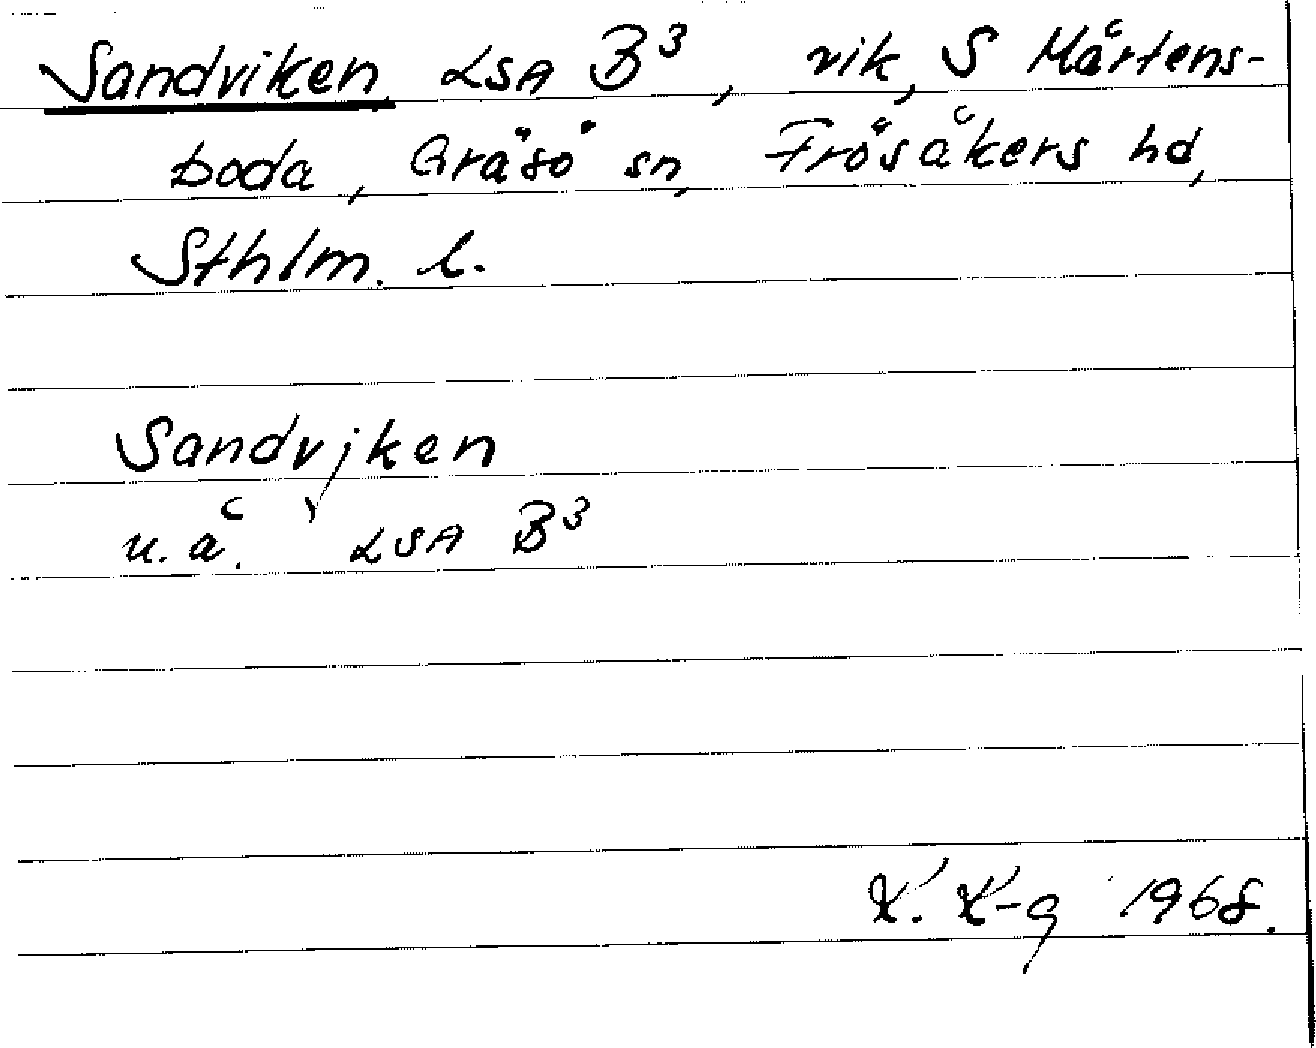 Sandviken LSA B³, vik, S Mårtens-
boda, Gräsö sn, Frösåkers hd,
Sthlm. l.
Sandvjken
u.å. LSA B³
K. K-g 1968.